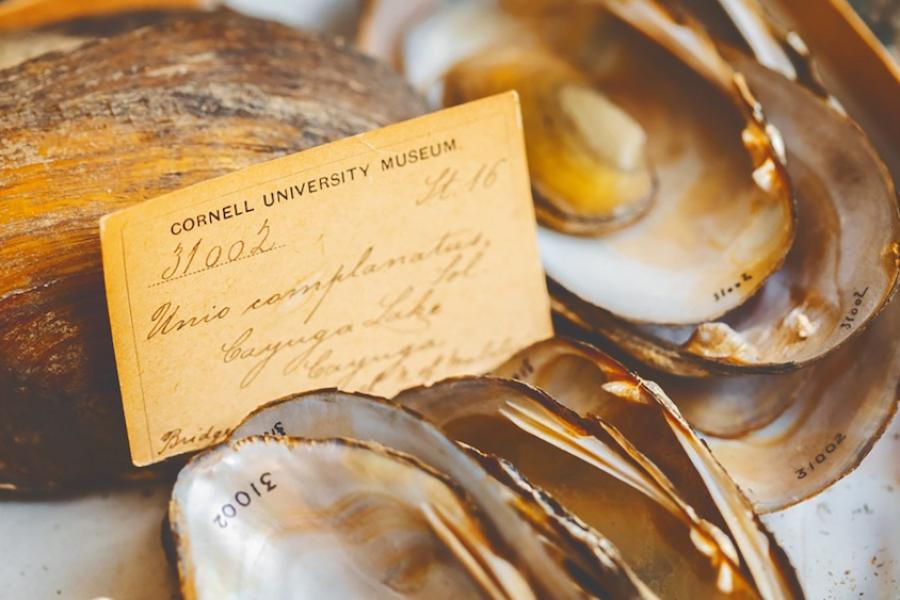 CORNELL UNIVERSITY MUSEUM
St. 16
31002
Unio complanatus,
Sol.
Cayuga Lake
Cayuga
Bridge
31002
31002
31002
31002